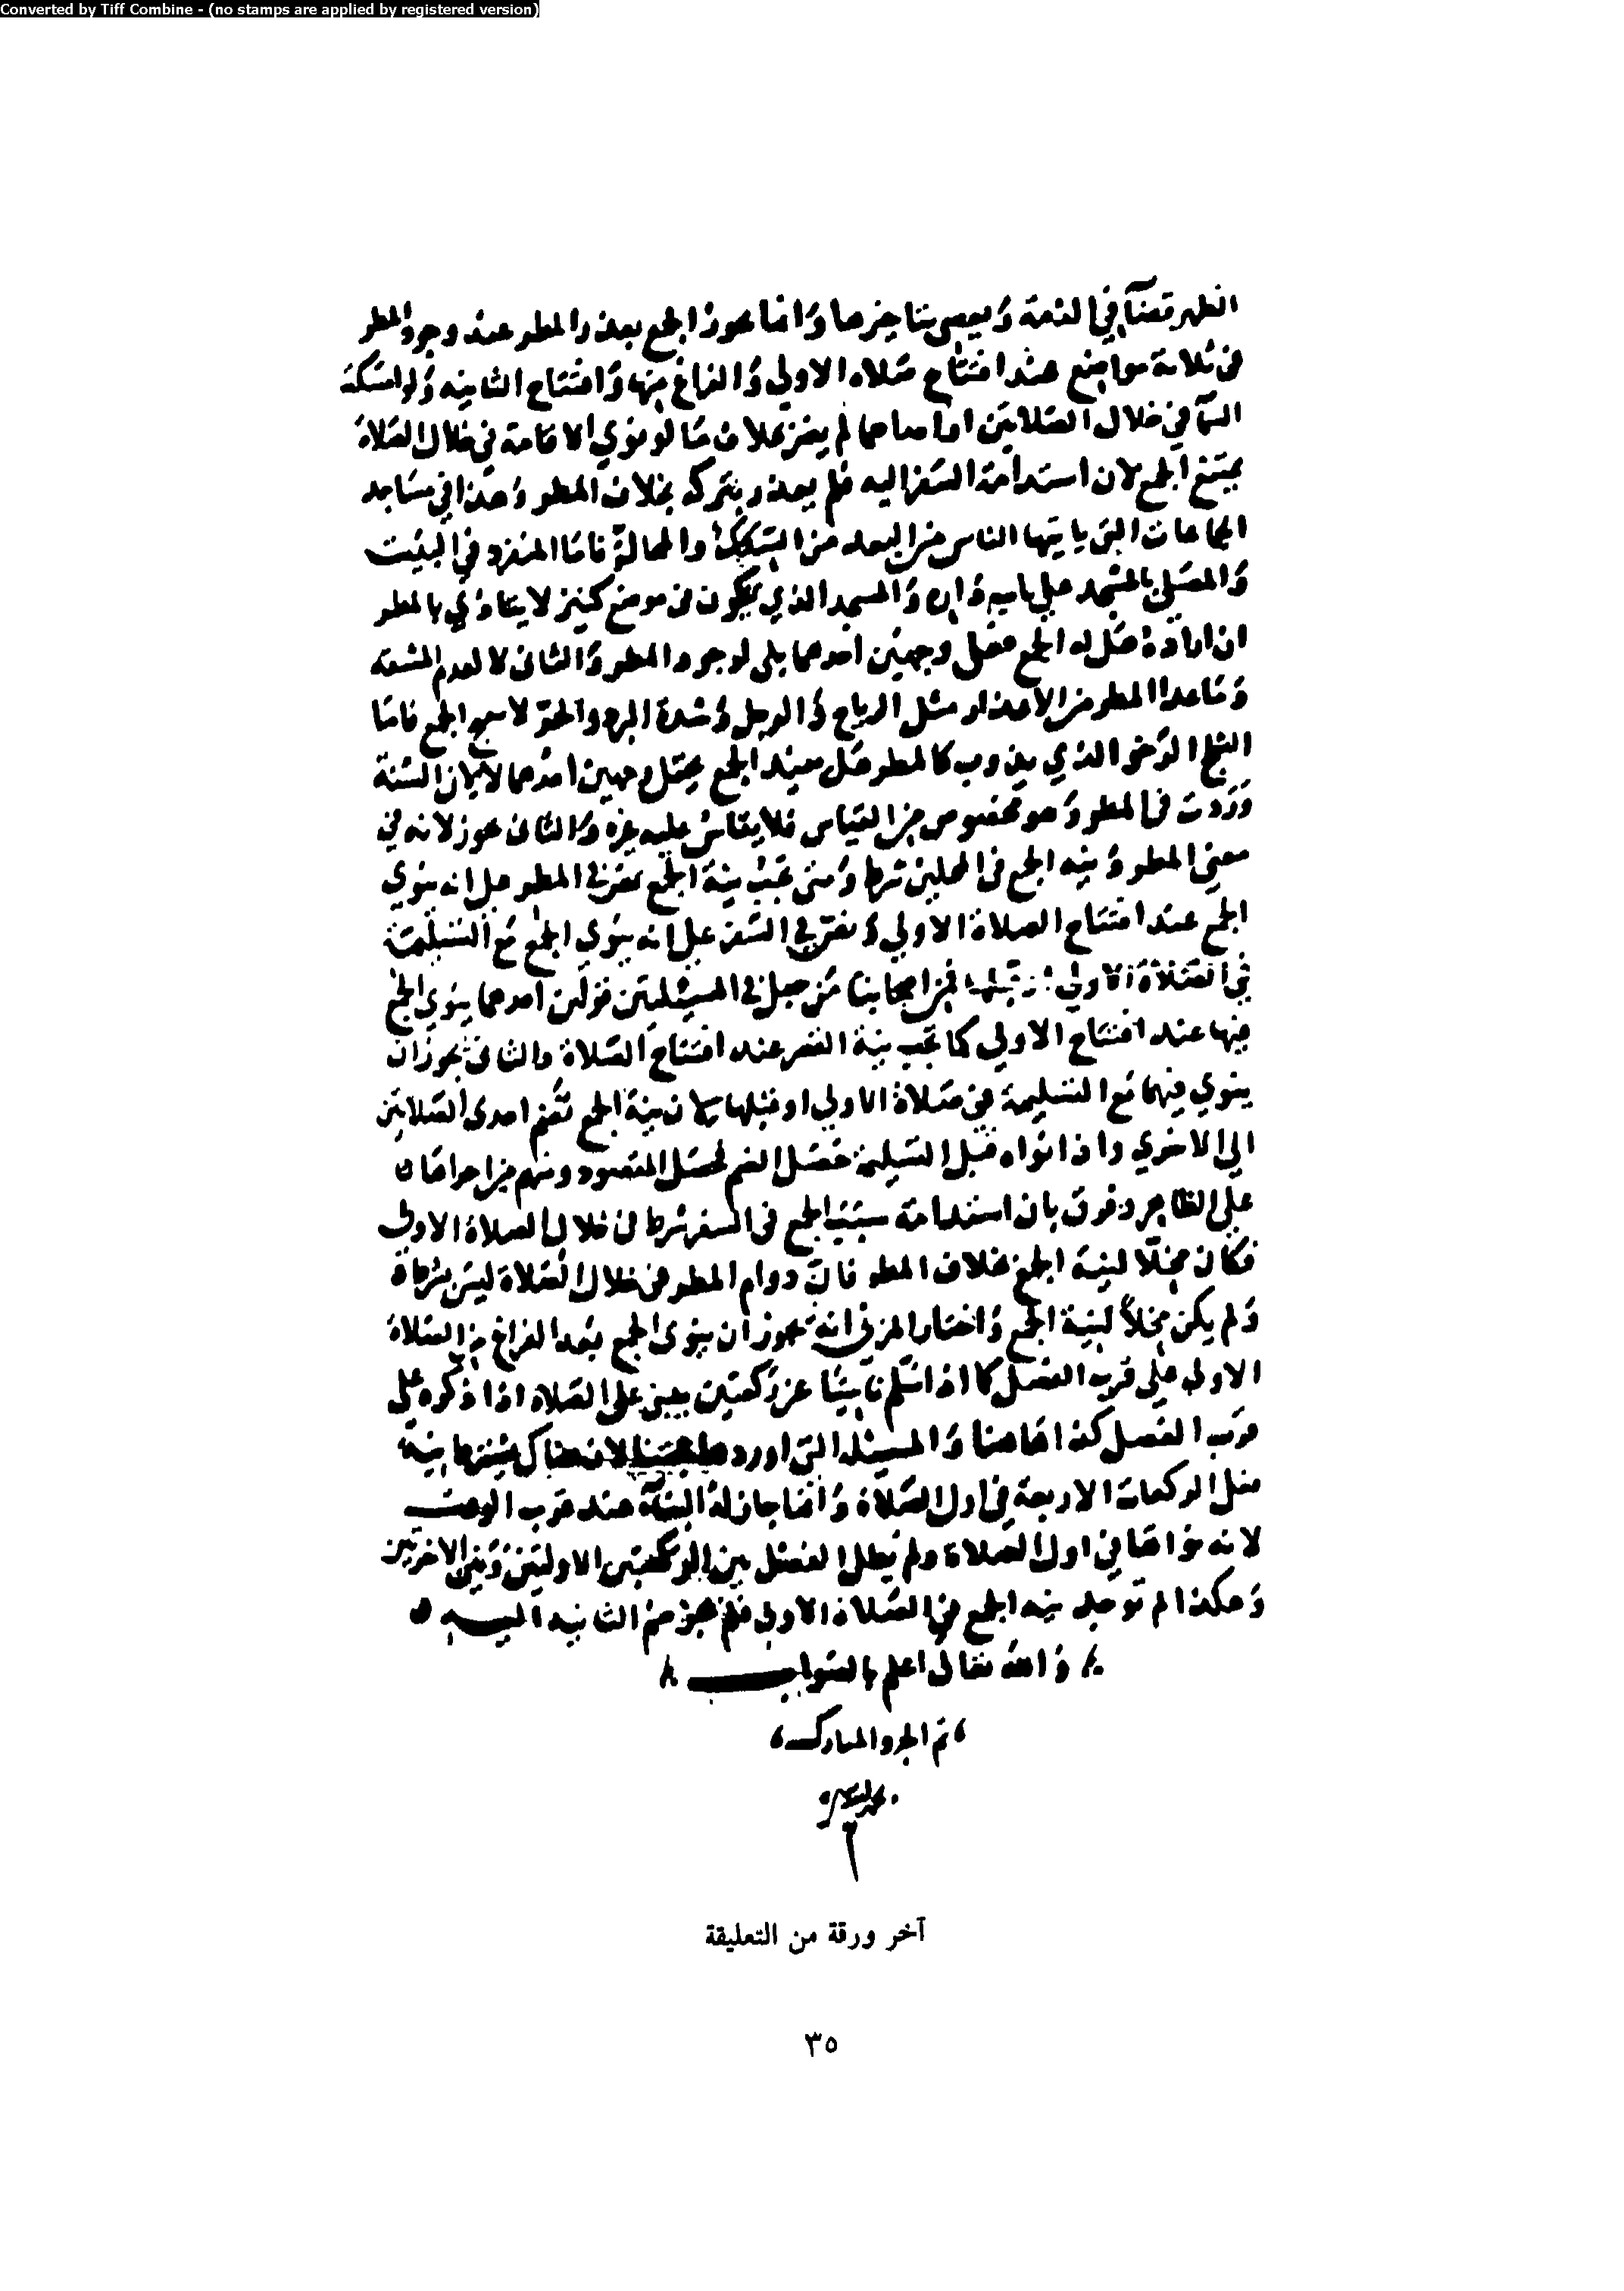 Converted by Tiff Combine - (no stamps are applied by registered version)
الظهر قضآ في الذمة ويعصي بتاخيرها وانما يجوز الجمع بعذر المطر عند وجود المطر
في ثلاثة مواضع عند افتتاح صلاه الاولى والفراغ منها وافتتاح الثانيه ولو امسكت
السمآ في خلال الصلاتين او احداهما لم يضر بخلاف ما لو نوى الاقامة في خلال الصلاة
يمتنع الجمع لان استدامة السفر اليه فلم يعذر بتركه بخلاف المطر وهذا في مساجد
الجماعات التي ياتيها الناس من البعد من السكك والمحالّ فاما المنفرد في البيت
والمصلي بالمسجد على باب داره والمسجد الذي يكون في موضع كنين لا يتاذى بالمطر
ان اراده هل له الجمع فعلى وجهين احدهما بلى لوجود المطر والثاني لا لعدم المشقه
وماعدا المطر من الاعذار مثل الرياح والوحل وشدة البرد والحر لا يبيح الجمع فاما
الثلج الرخو الذي يذوب كالمطر هل يفيد الجمع يحتمل وجهين احدهما لا لان السنة
وردت في المطر وهو مخصوص من القياس فلا يقاس عليه غيره والثاني يجوز لانه في
معنى المطر ونيه الجمع في المحلين شرط ومتى تجب نية الجمع نص في المطر على انه ينوي
الجمع عند افتتاح الصلاة الاولى ونص في السفر على انه ينوي الجمع مع التسليمة
في الصلاة الاولى او قبلها فمن اصحابنا من جعل في المسئلتين قولين احدهما ينوي الجمع
فيها عند افتتاح الاولى كما تجب نية القصر عند افتتاح الصلاة والثاني يجوز ان
ينوي فيهما مع التسليمة في صلاة الاولى او قبلها لان نية الجمع تضم احدى الصلاتين
الى الاخرى واذا نواه قبل التسليمة حصل الضم لحصل المقصود ومنهم من اجراهما
على الظاهر وفرق بان استدامة سبب الجمع في السفر شرط في خلال الصلاة الاولى
فكان محلا لنية الجمع بخلاف المطر فان دوام المطر في خلال الصلاة ليس بشرط
ولم يكن محلاً لنية الجمع واختار المزني انه يجوز ان ينوى الجمع بعد الفراغ من الصلاة
الاولى على قرب الفصل كما اذا سلم ناسيًا عن ركعتين يبني على الصلاه اذا ذكره على
قرب الفصل كذا هاهنا والمسئله التي اوردها لان هناك نية
مثل الركعات الاربعة في اول الصلاة وانما جاز له البنآ عند قرب الوقت
لانه نواها في اول الصلاة ولم يطل الفصل بين الركعتين الاولتين وبين الاخرتين
وهكذا لم توجد نيه الجمع في الصلاة الاولى فلم يجز ضم الثانيه اليه
والله تعالى اعلم بالصواب
تم الجزو المبارك
آخر ورقة من التعليقة
٣٥